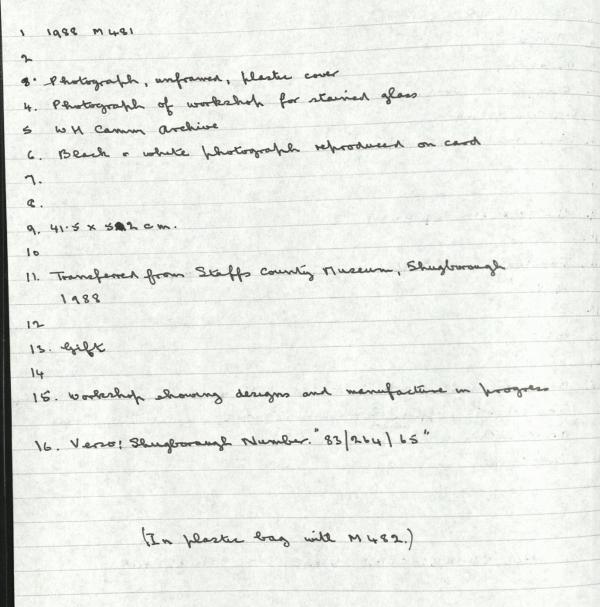 1 1988 M481
2
3. Photograph, unframed, plastic cover
4. Photograph of workshop for stained glass
5 W H Camm Archive
6. Black & white photograph reproduced on card
7.
8.
9. 41.5 x 52 cm.
10
11. Transferred from Staffs County Museum, Shugborough
1988
12
13. Gift
14
15. Workshop showing designs and manufacture in progress
16. Verso: Shugborough Number. "83/264/65"
(In plastic bag with M482.)